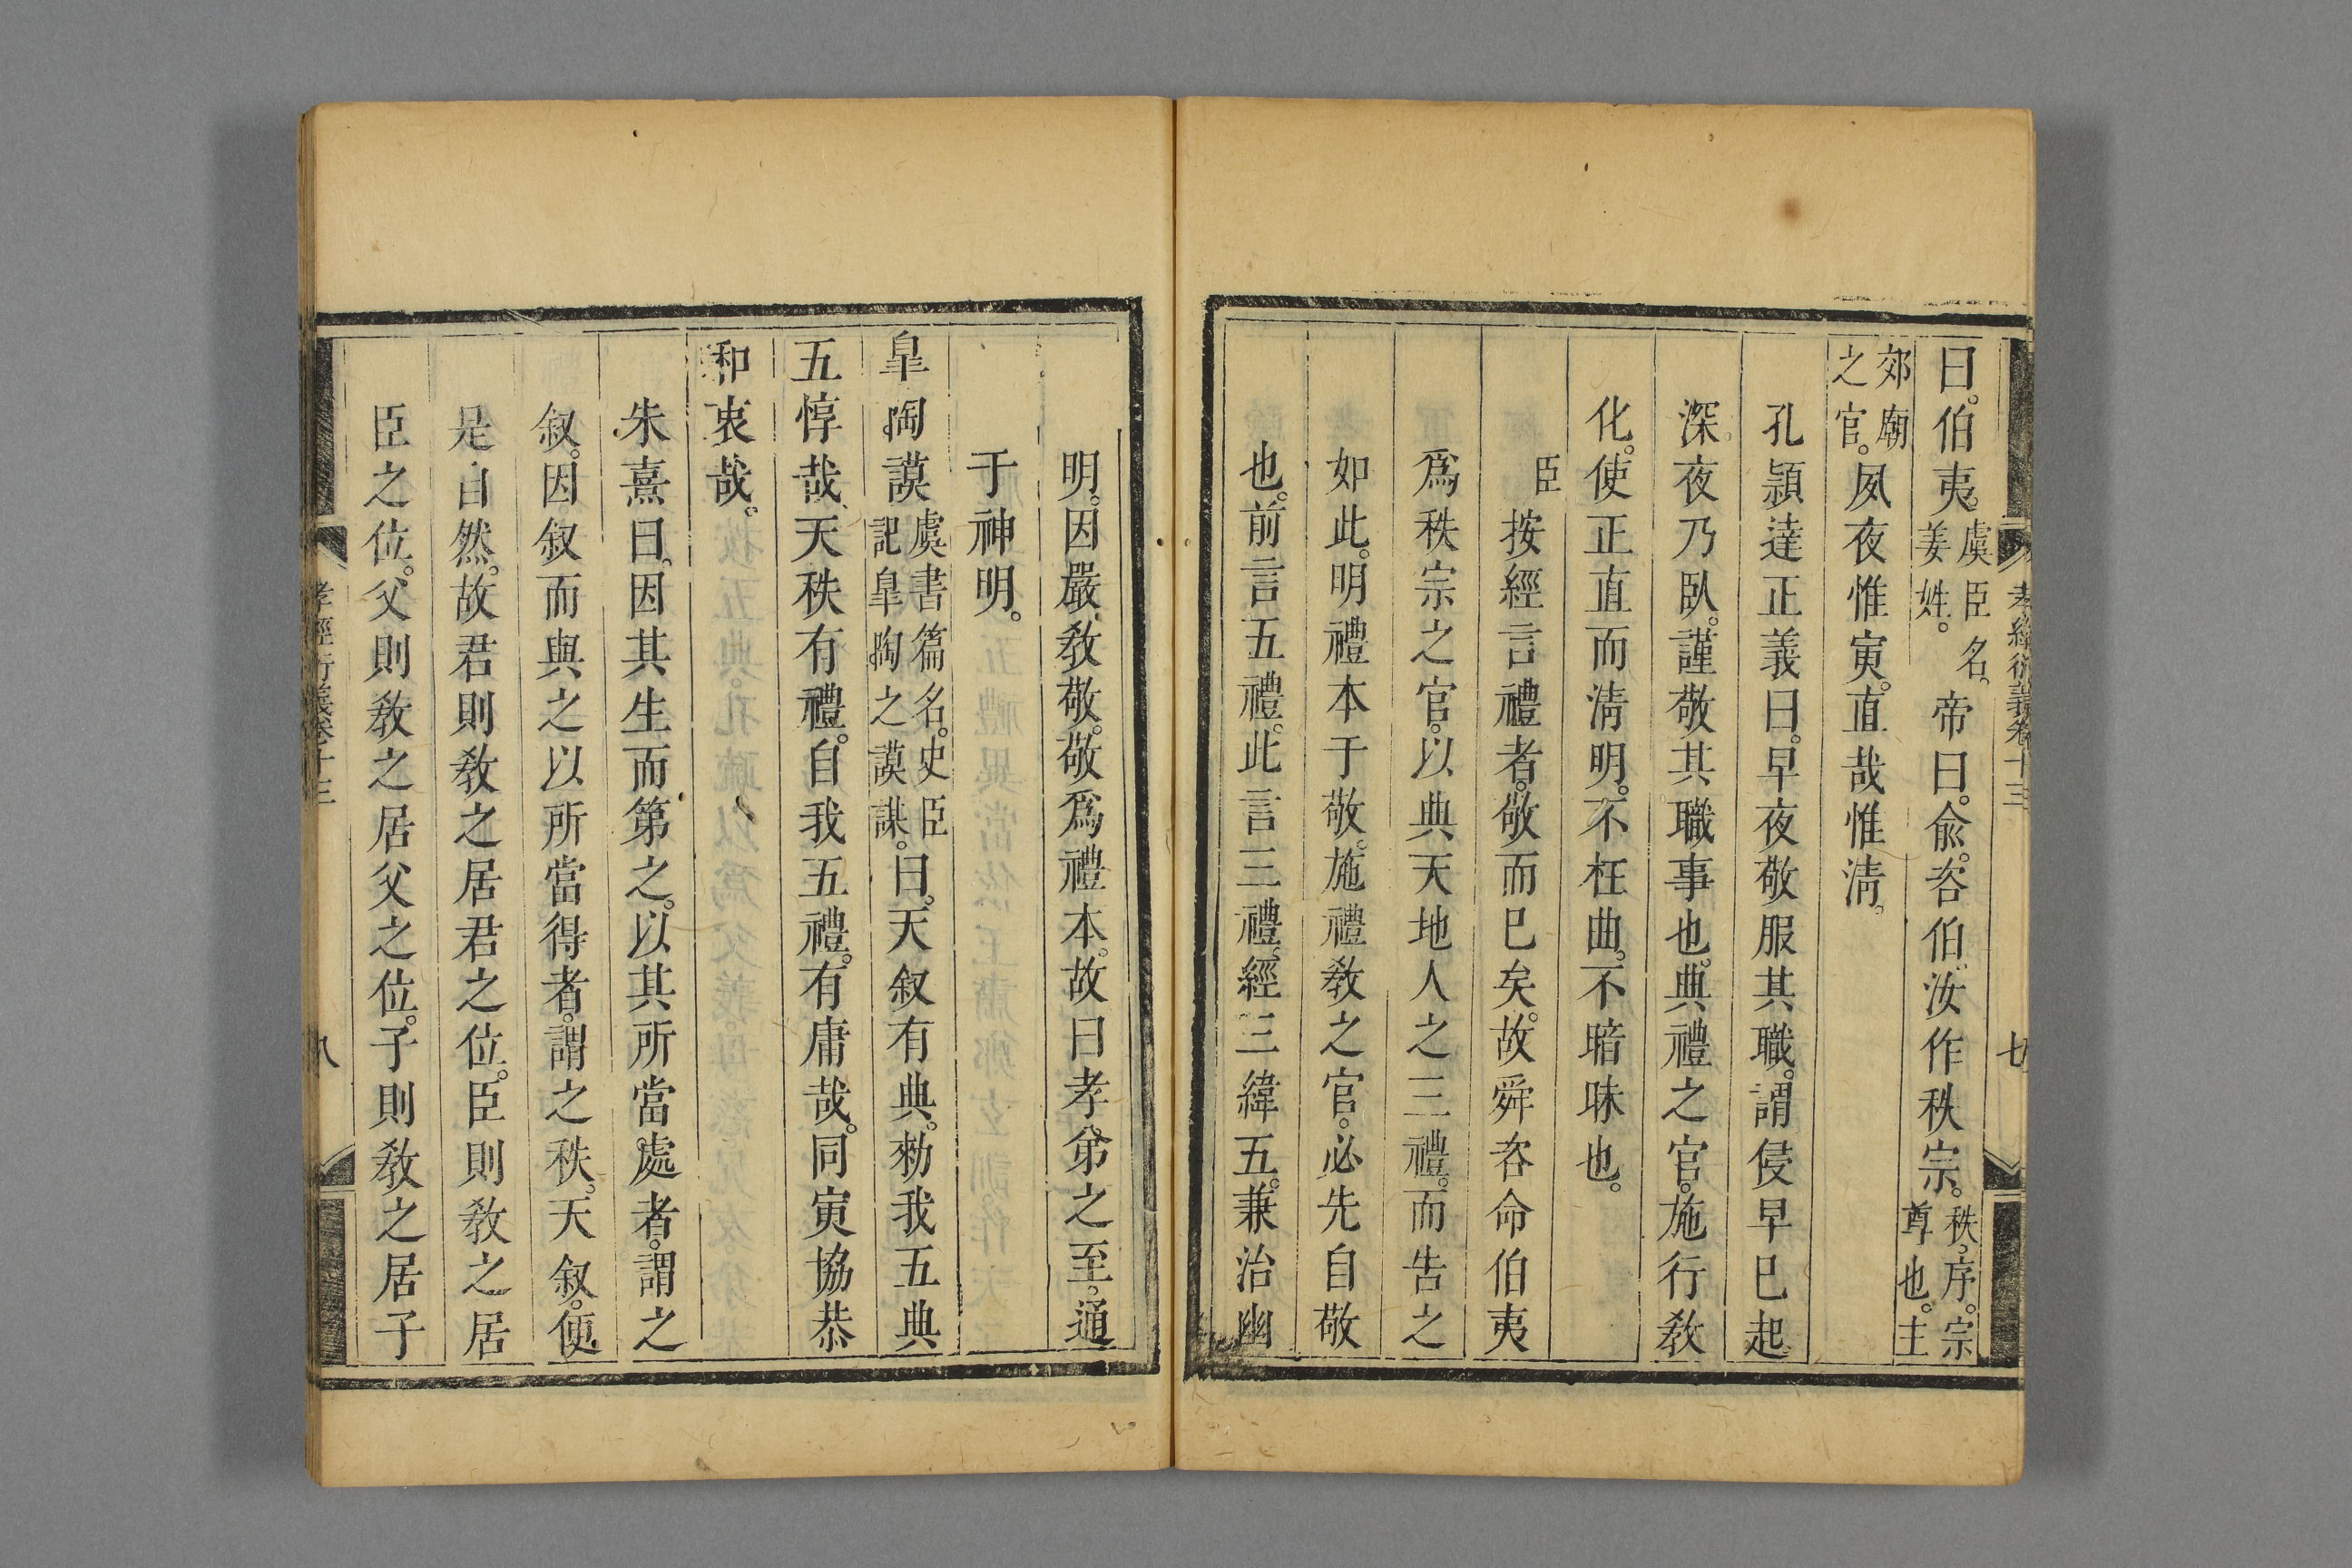 孝經衍義卷十三
七
曰。伯夷。虞臣名。姜姓。帝曰。俞。咨伯。汝作秩宗。秩。序。宗尊也。主
郊廟之官。夙夜惟寅。直哉惟淸。
孔頴達正義曰。早夜敬服其職。謂侵早已起
深夜乃臥。謹敬其職事也。典禮之官。施行敎
化。使正直而淸明。不枉曲。不暗昧也。
臣按經言禮者。敬而已矣。故舜咨命伯夷
爲秩宗之官。以典天地人之三禮。而告之
如此。明禮本于敬。施禮敎之官。必先自敬
也。前言五禮。此言三禮。經三緯五。兼治幽
明。因嚴敎敬。敬爲禮本。故曰孝弟之至。通
于神明。
臯陶謨虞書篇名。史臣記臯陶之謨謀。曰。天叙有典。勑我五典
五惇哉。天秩有禮。自我五禮。有庸哉。同寅協恭
和衷哉。
朱熹曰。因其生而第之。以其所當處者。謂之
叙。因叙而與之以所當得者。謂之秩。天叙。便
是自然。故君則敎之居君之位。臣則敎之居
臣之位。父則敎之居父之位。子則敎之居子
孝經衍義卷十三
八